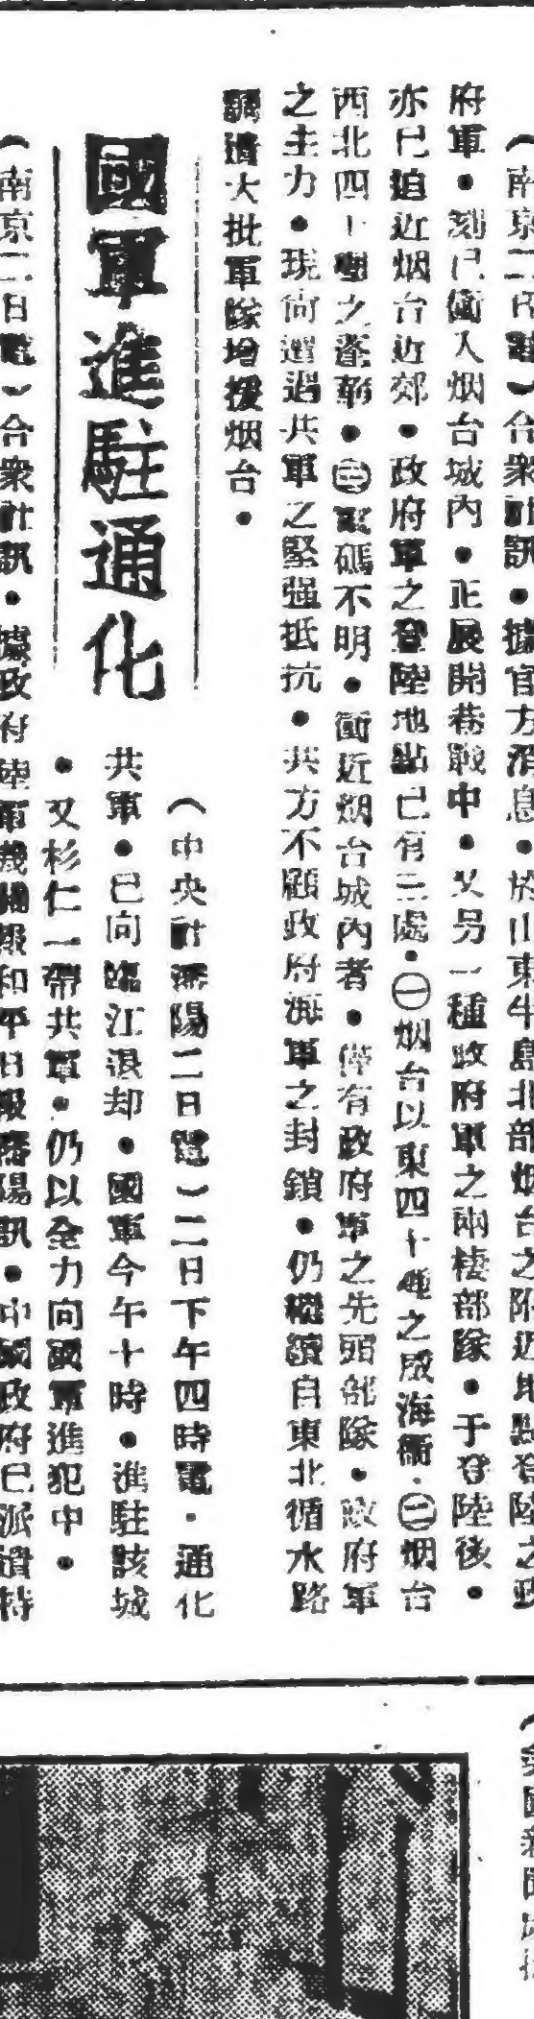 （南京二日電）合衆社訊●據官方消息●於山東半島北部烟台之附近地點登陸之政
府軍●刻已衝入烟台城內●正展開巷戰中●又另一種政府軍之兩棲部隊●于登陸後●
亦已迫近烟台近郊●政府軍之登陸地點已有三處●㊀烟台以東四十哩之威海衛●㊁烟台
西北四十哩之蓬萊●㊂電碼不明●衝近烟台城內者●僅有政府軍之先頭部隊●政府軍
之主力●現尚遭遇共軍之緊强抵抗●共方不顧政府海軍之封鎖●仍繼續自東北循水路
調遣大批軍隊增援烟台●
國軍進駐通化
（中央社瀋陽二日電）二日下午四時電●通化
共軍●已向臨江退却●國軍今午十時●進駐該城
●又杉仁一帶共軍●仍以全力向國軍進犯中●
（南京二日電）合衆社訊●據政府陸軍機關報和平日報瀋陽訊●中國政府已派遣特